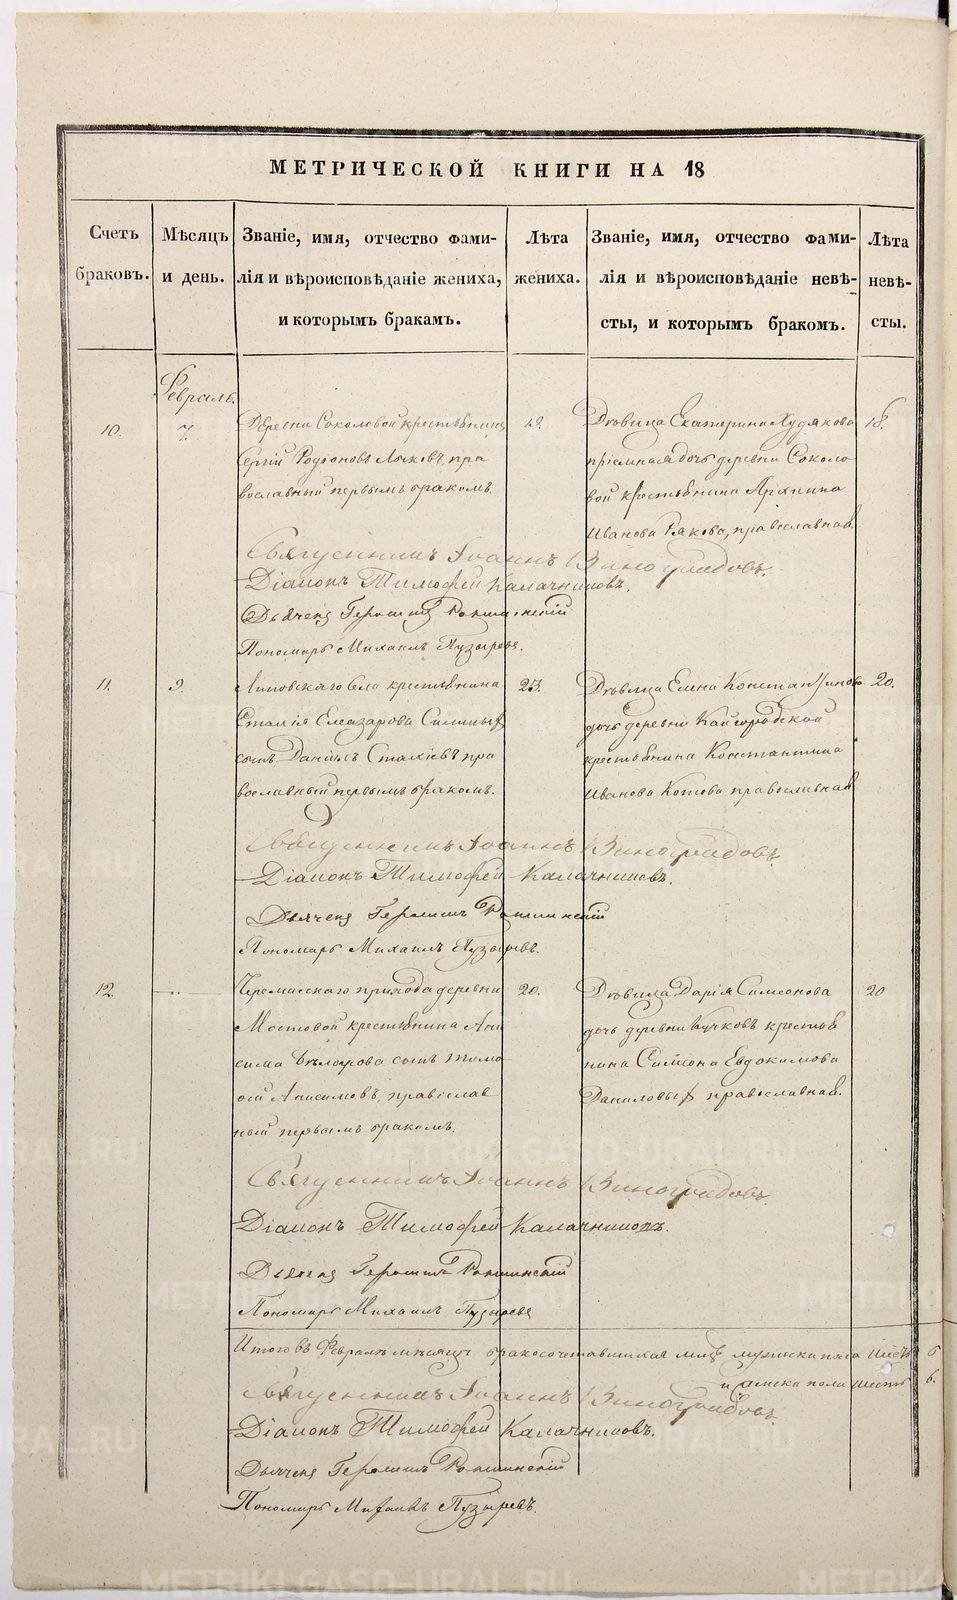 МЕТРИЧЕСКОЙ КНИГИ НА 18
Счетъ браковъ.
Мѣсяцъ и день.
Званіе, имя, отчество фами-
лія и вѣроисповѣданіе жениха,
и которымъ бракамъ.
Лѣта жениха.
Званіе, имя, отчество фами-
лія и вѣроисповѣданіе невѣ-
сты, и которымъ бракомъ.
Лѣта невѣ-
сты.
Февраль.
10.
7.
Деревни Соколовой крестьянинъ
Сергій Родіоновъ пра
вославный первымъ бракомъ.
19.
Дѣвица Екатерина Худякова
пріемная дочь деревни Соколо
вой крестьянина Архипа
Иванова православная.
18.
Священникъ Іоаннъ Виноградовъ.
Діаконъ Тимофей Калачниковъ.
Дьячекъ Герасимъ
Пономарь Михаилъ Пузыревъ.
11.
9.
Липовскаго села крестьянина
Стахія Елеазарова
сынъ Даніилъ Стахіевъ пра
вославный первымъ бракомъ.
23.
Дѣвица Елена Константинова
дочь деревни Кайгородской
крестьянина Константина
Иванова Котова православная
20.
Священникъ Іоаннъ Виноградовъ
Діаконъ Тимофей Калачниковъ.
Дьячекъ Герасимъ
Пономарь Михаилъ Пузыревъ.
12.
Черемисскаго прихода деревни
Мостовой крестьянина Ани
сима сынъ Тимо
фей Анисимовъ, православ
ный первымъ бракомъ.
20.
Дѣвица Дарія Симеонова
дочь деревни Кучковъ крестья
нина Симеона Евдокимова
Даниловыхъ православная.
20
Священникъ Іоаннъ Виноградовъ
Діаконъ Тимофей Калачниковъ.
Дьячекъ Герасимъ
Пономарь Михаилъ Пузыревъ
Итого въ Февралѣ мѣсяцѣ бракосочетавшихся лицъ мужеска пола шесть 6
и женска пола шесть 6.
Священникъ Іоаннъ Виноградовъ
Діаконъ Тимофей Калачниковъ.
Дьячекъ Герасимъ
Пономарь Михаилъ Пузыревъ.
METRIKI.GASO-URAL.RU